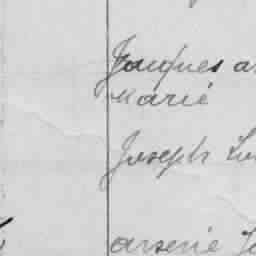 Jacques a
Marie
Joseph
arsene